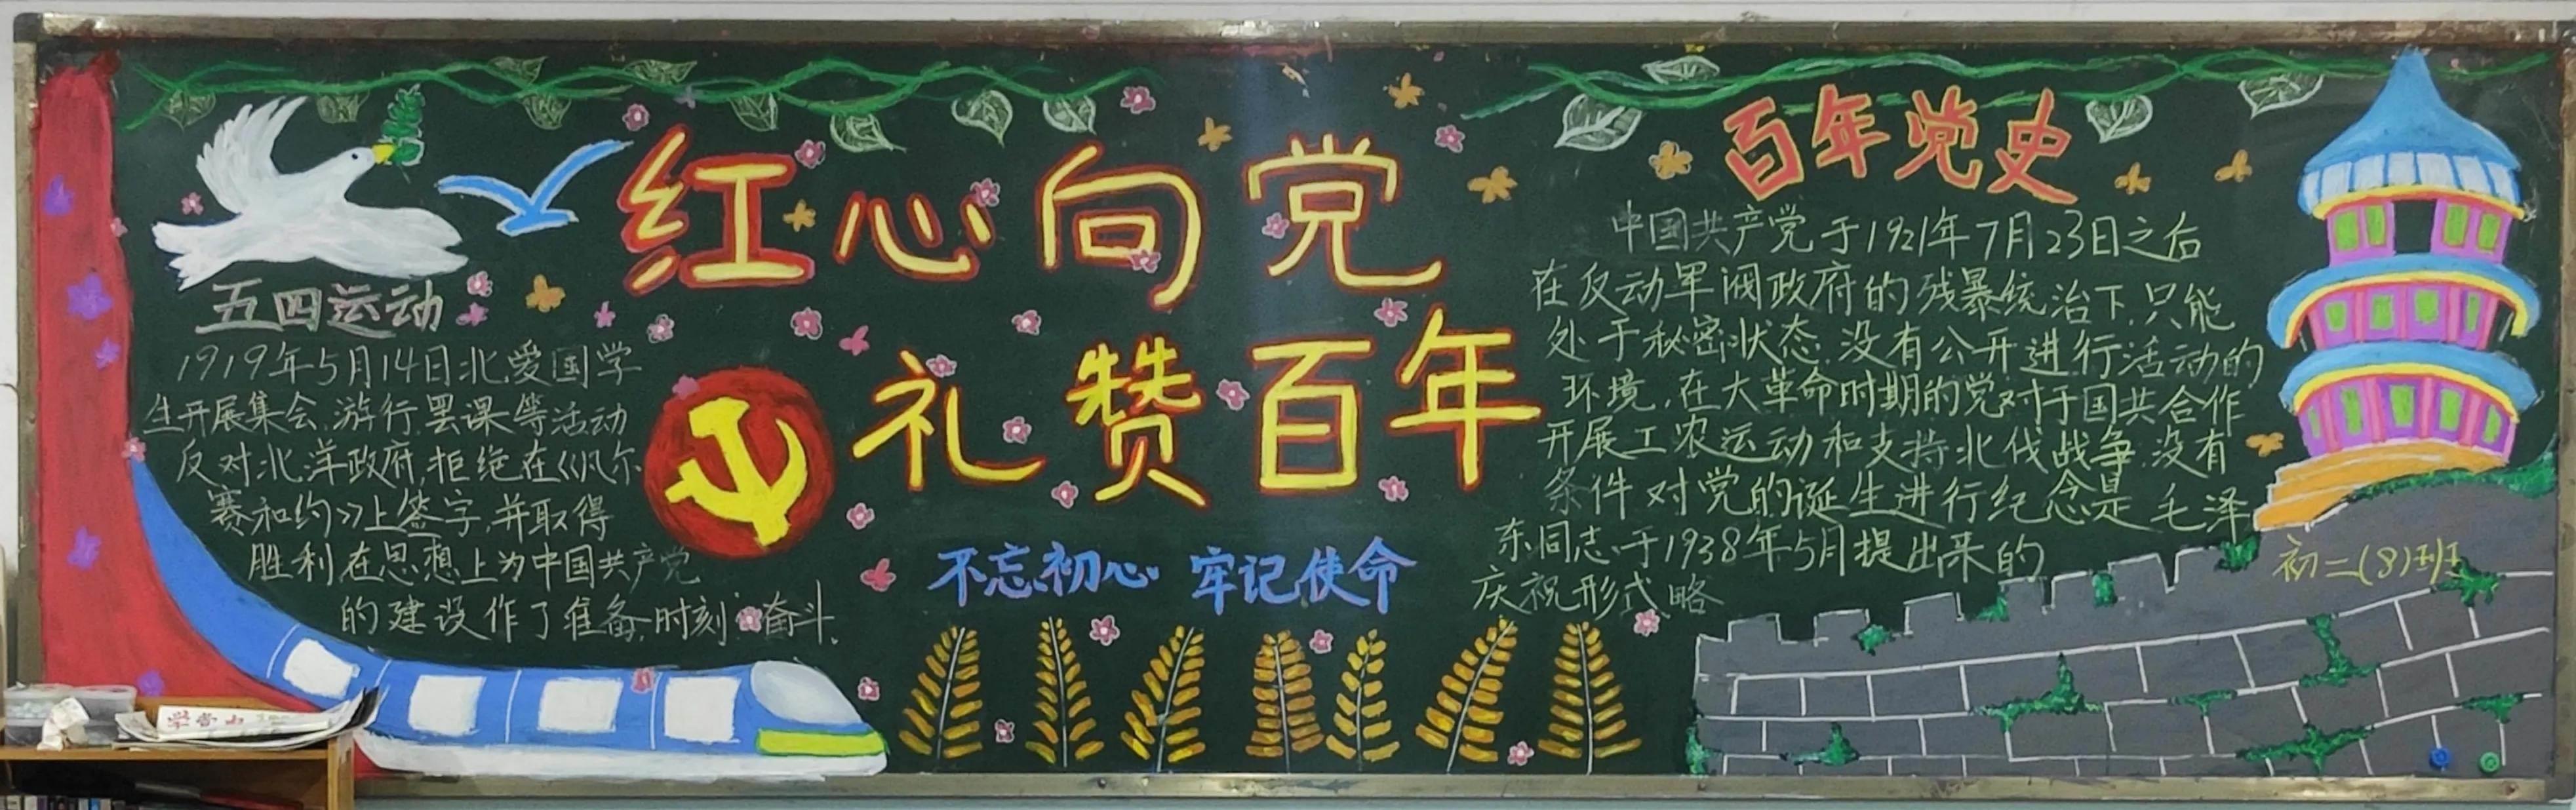 五四运动
1919年5月14日北爱国学
生开展集会,游行,罢课等活动
反对北洋政府,拒绝在《凡尔
赛和约》上签字,并取得
胜利在思想上为中国共产党
的建设作了准备,时刻奋斗.
红心向党
礼赞百年
不忘初心 牢记使命
百年党史
中国共产党于1921年7月23日之后
在反动军阀政府的残暴统治下,只能
处于秘密状态,没有公开进行活动的
环境,在大革命时期的党对于国共合作
开展工农运动和支持北伐战争,没有
条件对党的诞生进行纪念是毛泽
东同志于1938年5月提出来的
庆祝形式略
初二(8)班